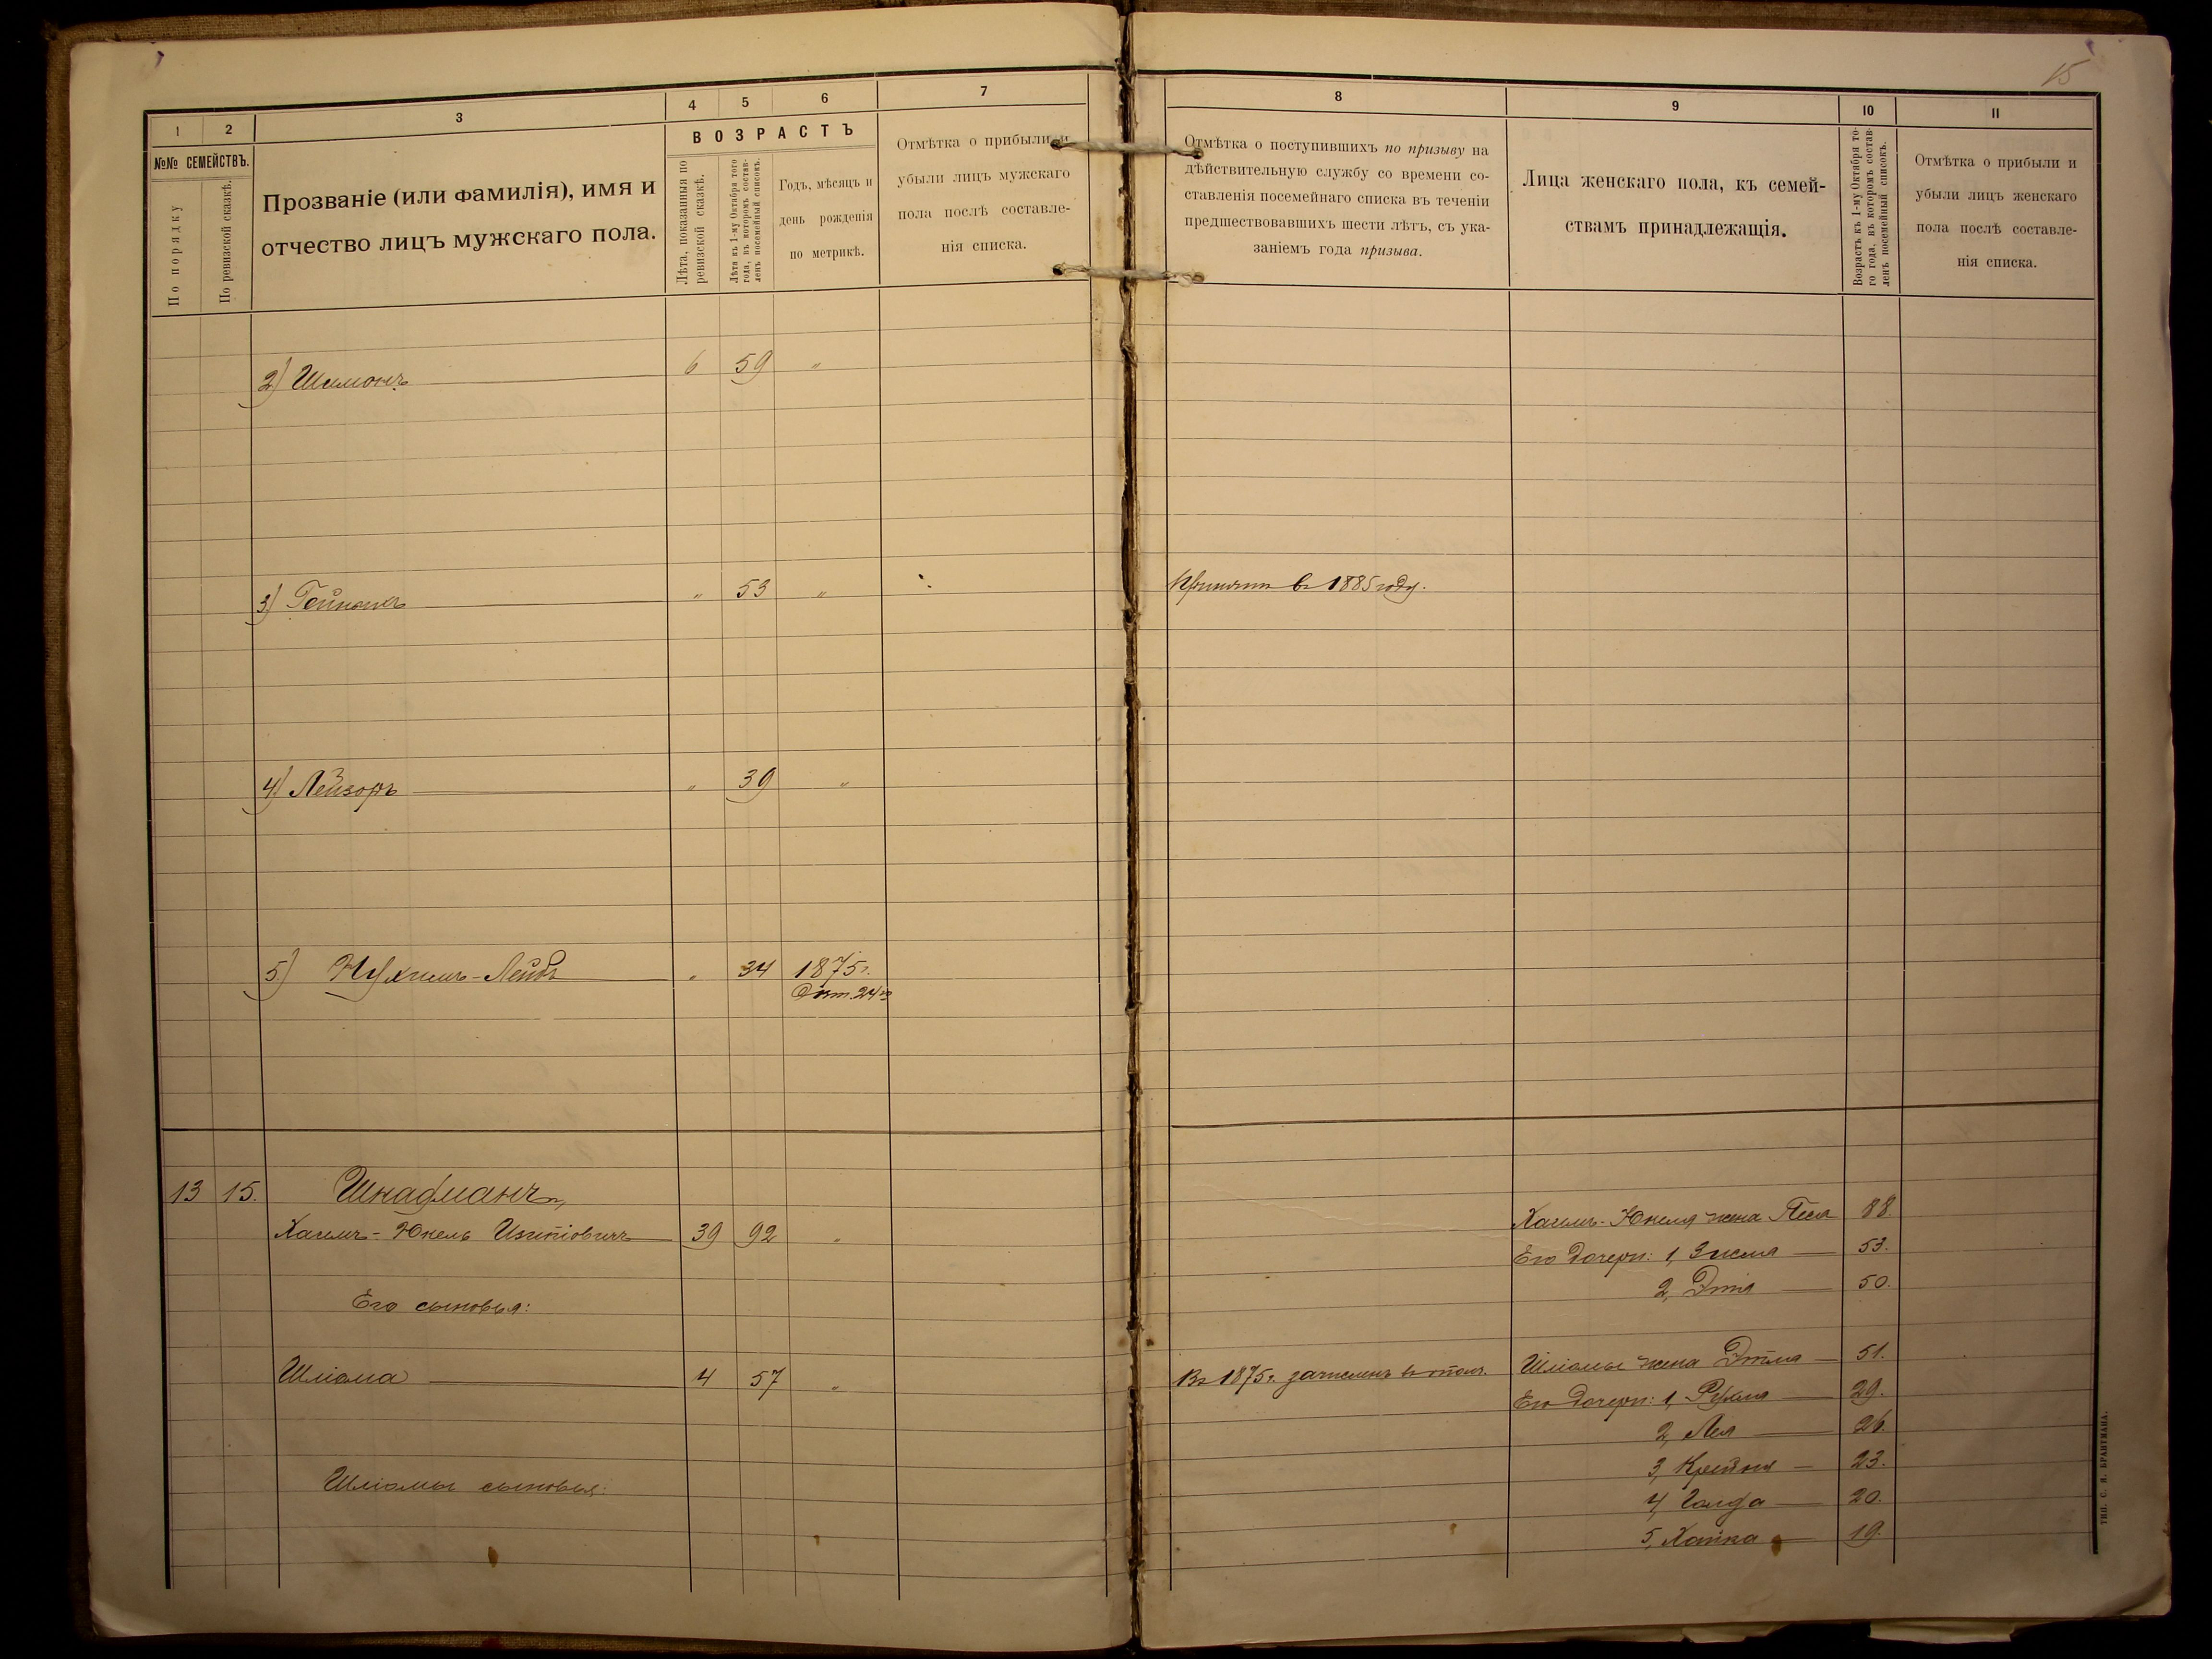 15
1
2
3
4
5
6
7
№№ СЕМЕЙСТВЪ.
По порядку
По ревизской сказкѣ.
Прозваніе (или фамилія), имя и
отчество лицъ мужскаго пола.
ВОЗРАСТЪ
Лѣта, показанныя по
ревизской сказкѣ.
Лѣта къ 1-му Октября того
года, въ которомъ состав-
ленъ посемейный списокъ.
Годъ, мѣсяцъ и
день рожденія
по метрикѣ.
Отмѣтка о прибыли и
убыли лицъ мужскаго
пола послѣ составле-
нія списка.
2) Шимонъ 6 59 "
3) Гейнохъ " 53 "
4) Лейзоръ " 39 "
5) Нухимъ-Лейбъ " 34 1875г.
Окт. 24го
13 15. Шнайдманъ,
Хаимъ-Юкель Изиновичъ 39 92 "
Его сыновья:
Шліома 4 57 "
Шліомы сыновья:
8
9
10
11
Отмѣтка о поступившихъ по призыву на
дѣйствительную службу со времени со-
ставленія посемейнаго списка въ теченіи
предшествовавшихъ шести лѣтъ, съ ука-
заніемъ года призыва.
Лица женскаго пола, къ семей-
ствамъ принадлежащія.
Возрастъ къ 1-му Октября то-
го года, въ которомъ состав-
ленъ посемейный списокъ.
Отмѣтка о прибыли и
убыли лицъ женскаго
пола послѣ составле-
нія списка.
Принятъ въ 1885 году.
Хаимъ-Юкеля жена Песя 88
Его дочери: 1, Зисля 53.
2, Этя 50.
Въ 1875г. зачисленъ въ опол. Шліомы жена Этля 51.
Его дочери: 1, Рухля 29.
2, Лея 26.
3, Крейня 23.
4, Голда 20.
5, Хайка 19.
ТИП. С. Я. БРАНТМАНА.